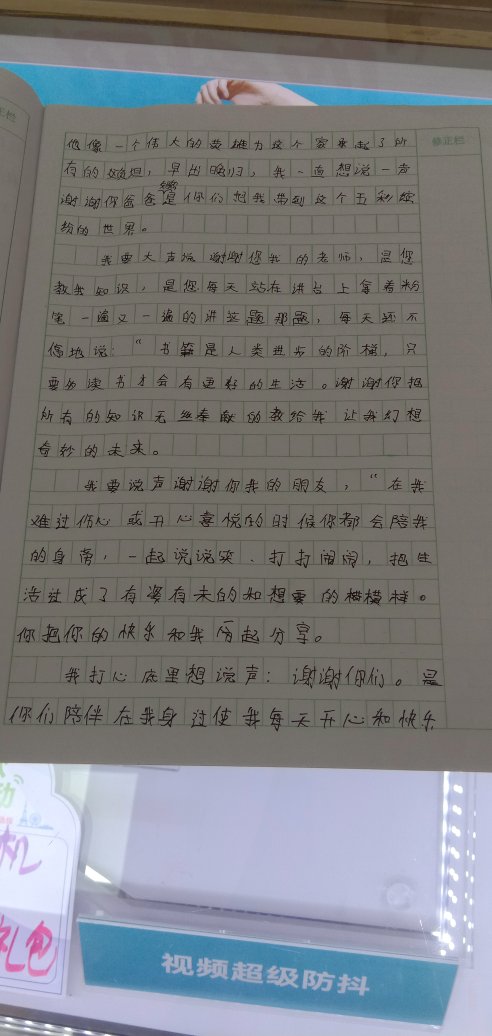 正栏
修正栏
您像一个伟大的英雄为这个家承起了所
有的烦恼，早出晚归，我一直想说一声
谢谢你爸爸妈妈是你们把我带到这个五彩缤
纷的世界。
我要大声说谢谢您我的老师，是您
教我知识，是您每天站在讲台上拿着粉
笔一遍又一遍的讲这题那题，每天还不
倦地说：“书籍是人类进步的阶梯，只
要多读书才会有更好的生活。谢谢你把
所有的知识无丝奉献的教给我让我幻想
奇妙的未来。
我要说声谢谢你我的朋友，“在我
难过伤心或开心喜悦的时候你都会陪我
的身旁，一起说说笑、打打闹闹，把生
活过成了有姿有未的和想要的模模样。
你把你的快乐和我一起分享。
我打心底里想说声：谢谢你们。是
你们陪伴在我身边使我每天开心和快乐
动
机
礼包
视频超级防抖